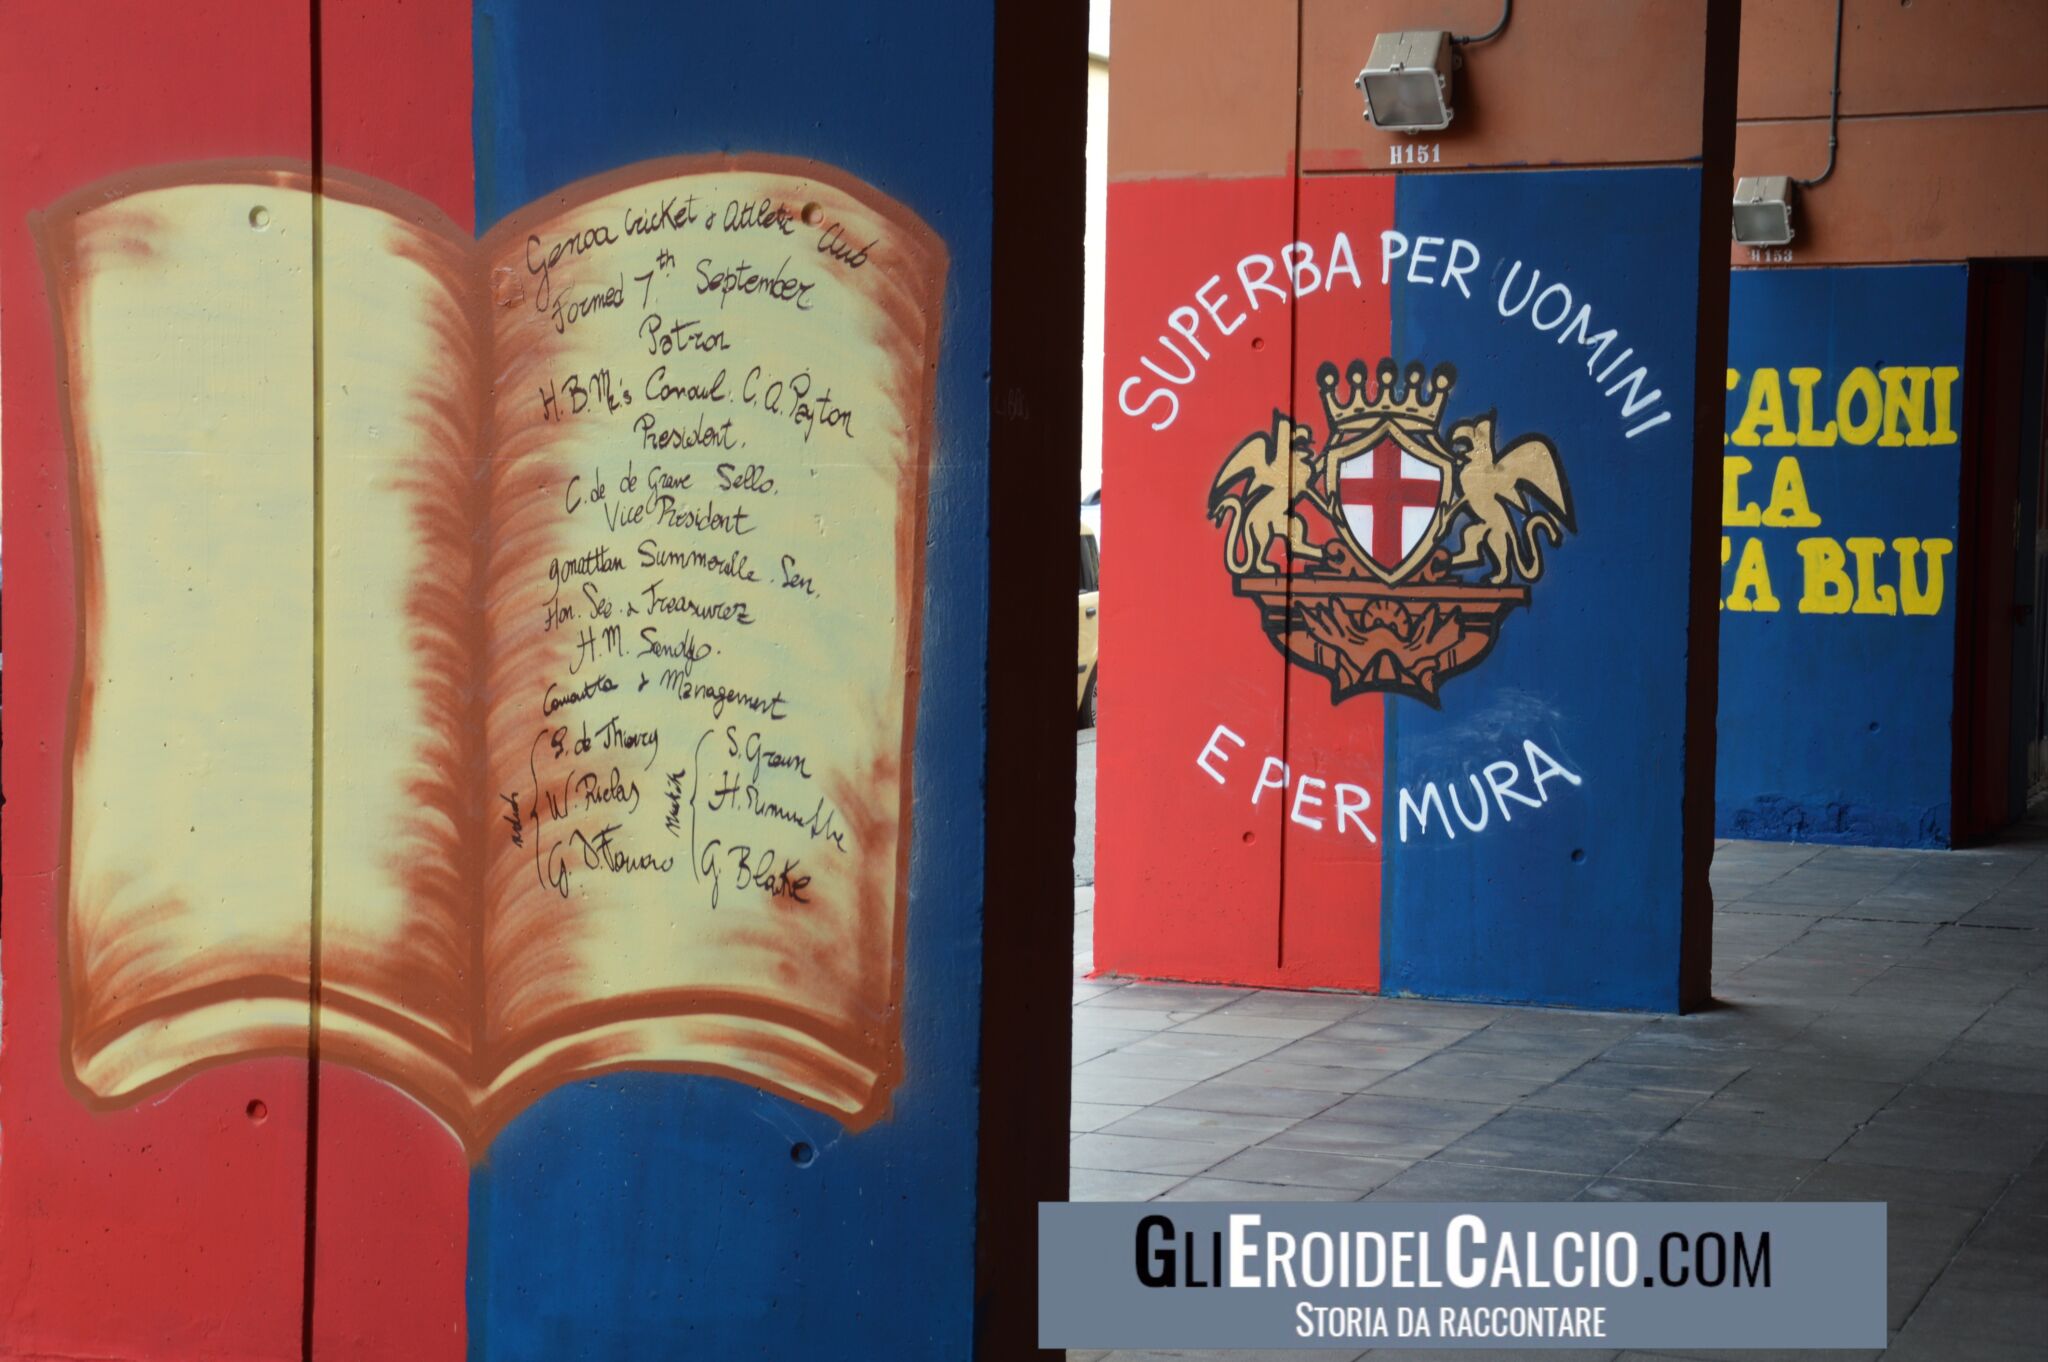 Genoa Cricket & Athletic Club
Formed 7th September
Patron
H.B.M's Consul. C.A. Payton
President.
C. de de Grave Sello.
Vice President
Jonatthan Summerelle. Sen.
Hon. See. & Treasurer
H.M. Sandjo.
& Management
S. de Thierry
W. Rielas
G. D. Fawaro
S. Green
H.
G. Blake
H151
SUPERBA PER UOMINI
E PER MURA
H153
TALONI
LA
TA BLU
GLIEROIDELCALCIO.COM
STORIA DA RACCONTARE